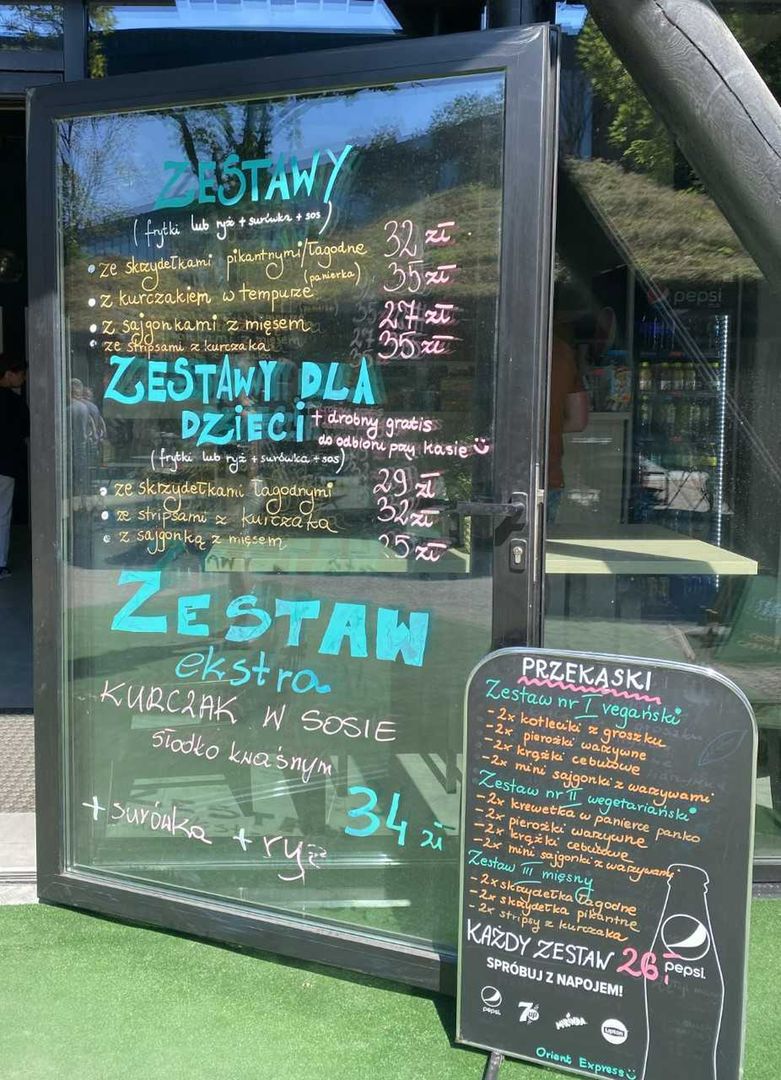 ZESTAWY
(frytki lub ryż + surówka + sos)
• ze skrzydełkami pikantnymi/łagodne 32 zł
(panierka)
• z kurczakiem w tempurze 35 zł
• z sajgonkami z mięsem 27 zł
• ze stripsami z kurczaka 35 zł
ZESTAWY DLA
DZIECI + drobny gratis
do odbioru przy kasie
(frytki lub ryż + surówka + sos)
• ze skrzydełkami łagodnymi 29 zł
• ze stripsami z kurczaka 32 zł
• z sajgonką z mięsem 25 zł
ZESTAW
ekstra
KURCZAK W SOSIE
słodko kwaśnym
+ surówka + ryż
34 zł
pepsi
PRZEKĄSKI
Zestaw nr I vegański
- 2x kotleciki z groszku
- 2x pierożki warzywne
- 2x krążki cebulowe
- 2x mini sajgonki z warzywami
Zestaw nr II wegetariański
- 2x krewetka w panierce panko
- 2x pierożki warzywne
- 2x krążki cebulowe
- 2x mini sajgonki z warzywami
Zestaw III mięsny
- 2x skrzydełka łagodne
- 2x skrzydełka pikantne
- 2x stripsy z kurczaka
KAŻDY ZESTAW 26,-
pepsi
SPRÓBUJ Z NAPOJEM!
pepsi 7up MIRINDA Lipton
Orient Express